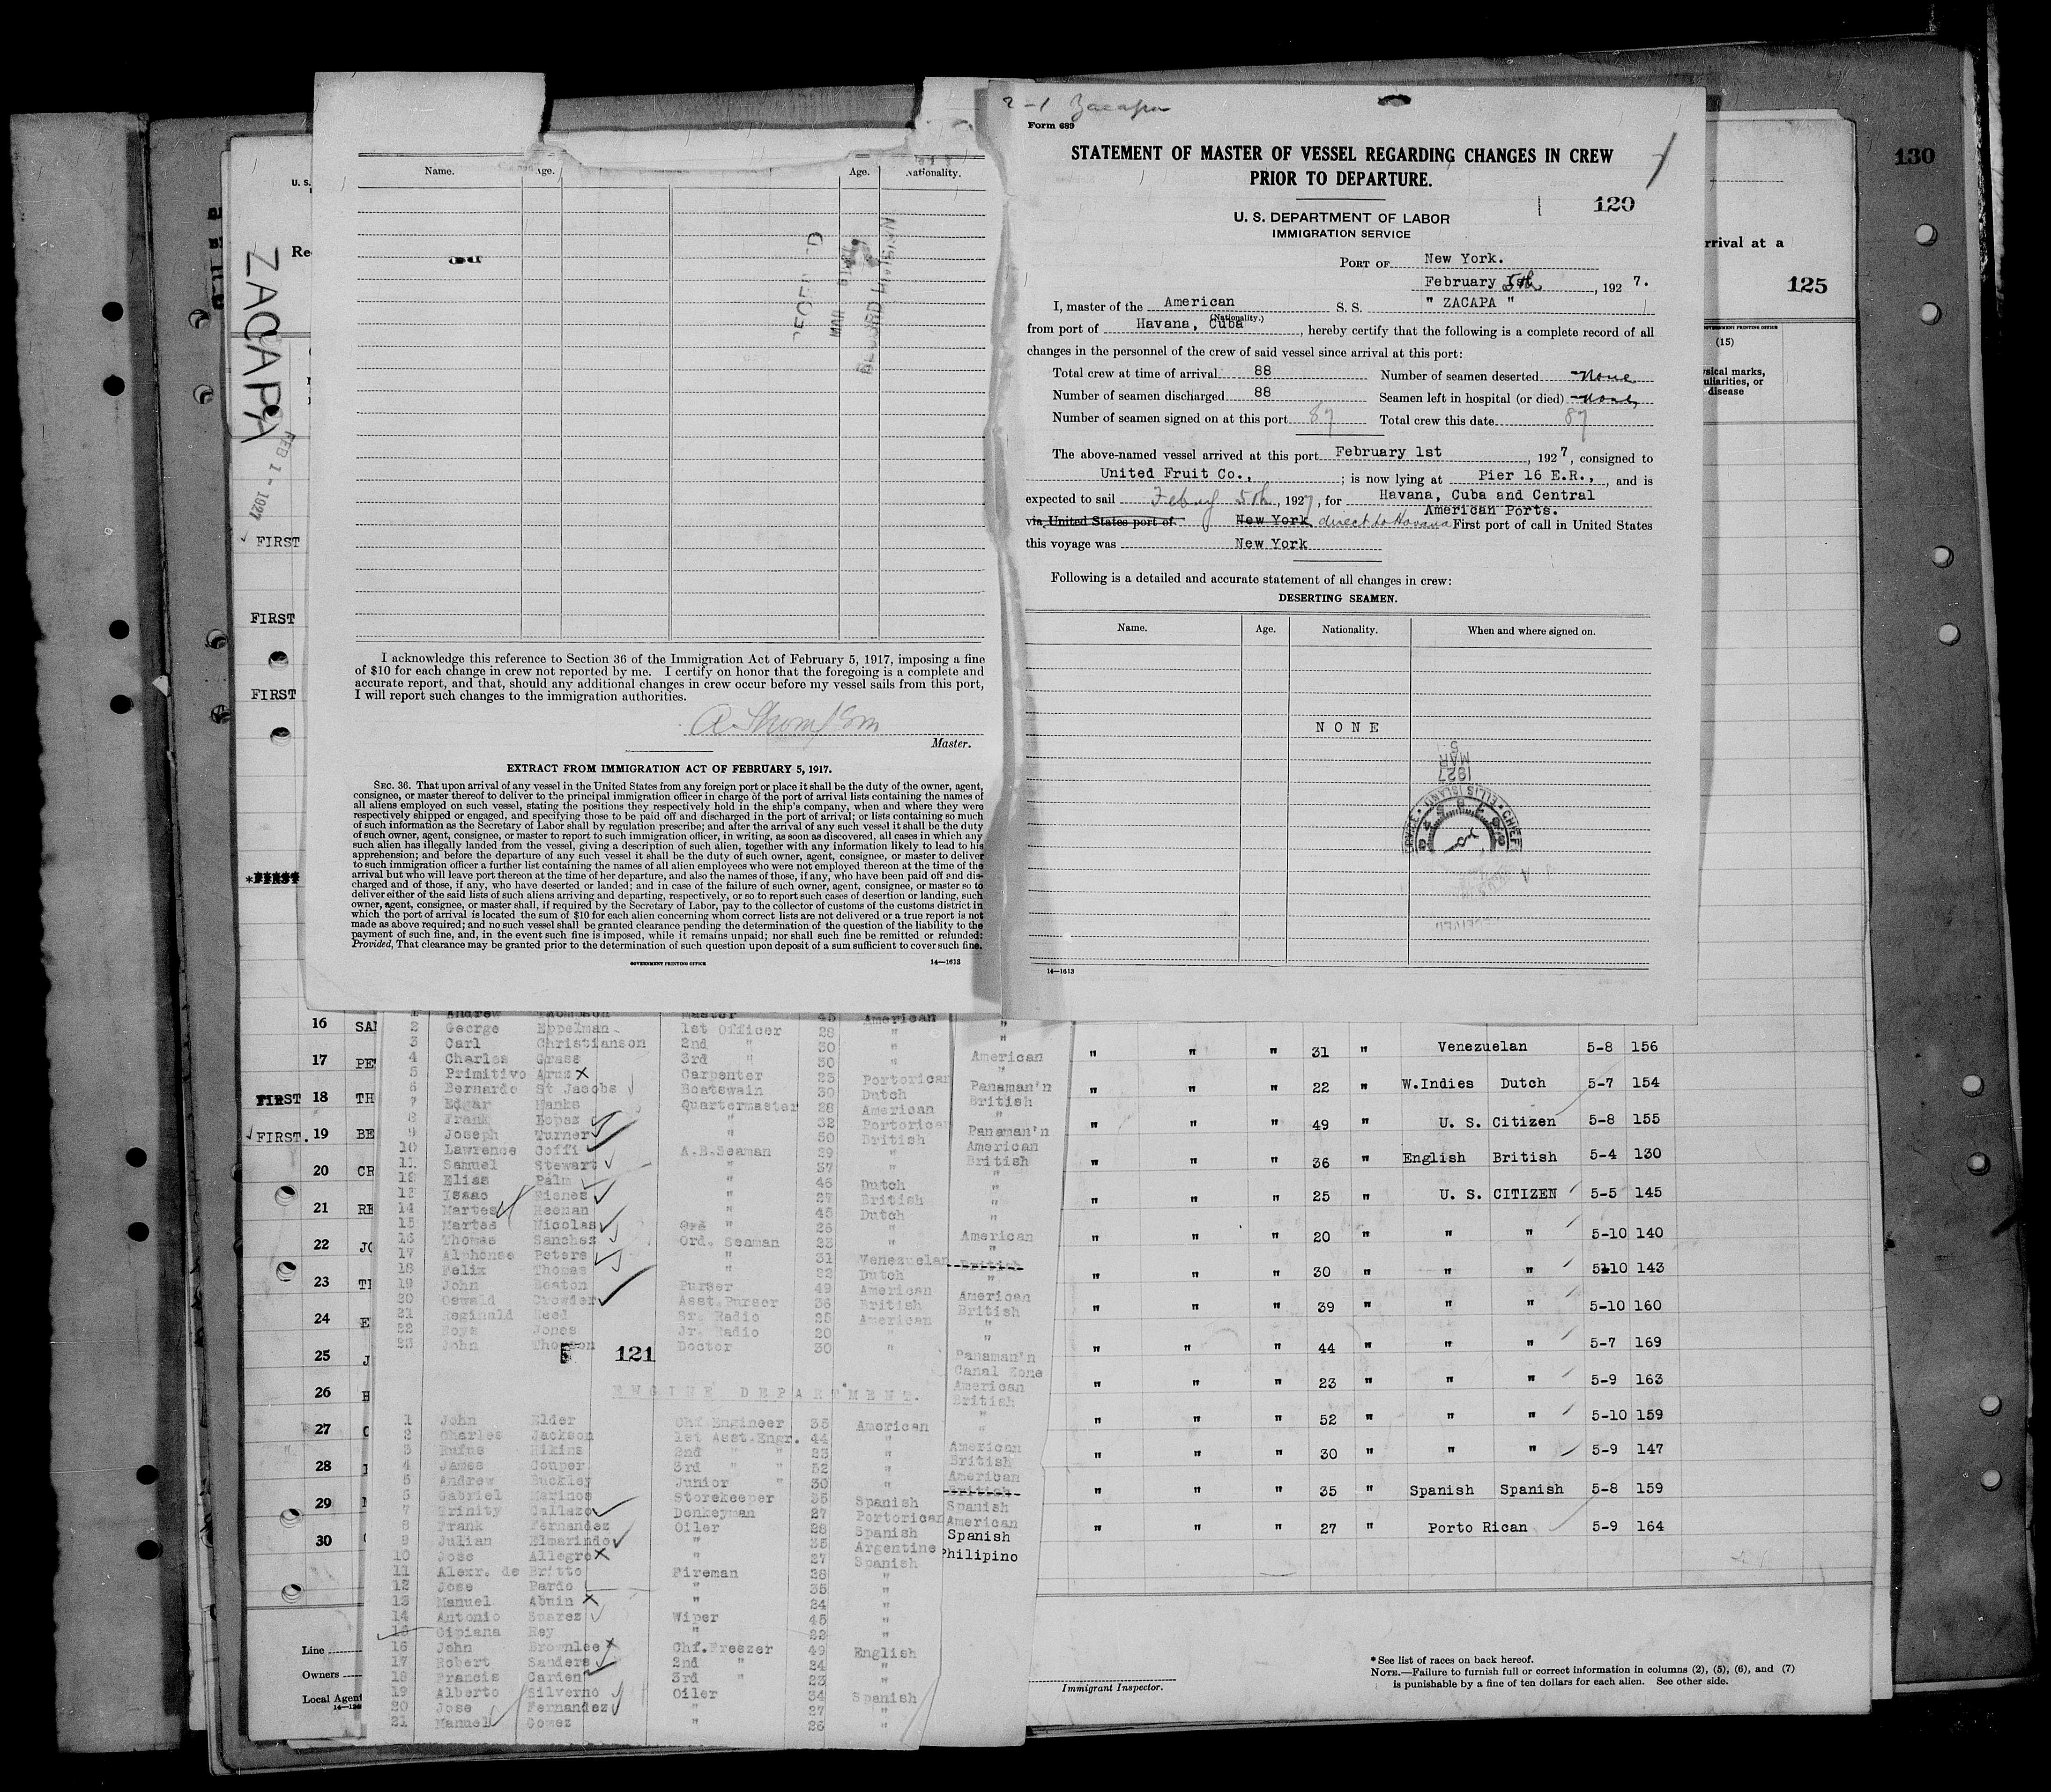 2-1 Zacapa
Form 689
STATEMENT OF MASTER OF VESSEL REGARDING CHANGES IN CREW
PRIOR TO DEPARTURE.
120
U. S. DEPARTMENT OF LABOR
IMMIGRATION SERVICE
PORT OF New York.
February 5th, 1927.
I, master of the American S. S. " ZACAPA "
(Nationality.)
from port of Havana, Cuba, hereby certify that the following is a complete record of all
changes in the personnel of the crew of said vessel since arrival at this port:
Total crew at time of arrival 88 Number of seamen deserted None
Number of seamen discharged 88 Seamen left in hospital (or died) None
Number of seamen signed on at this port 87 Total crew this date 87
The above-named vessel arrived at this port February 1st, 1927, consigned to
United Fruit Co., ; is now lying at Pier 16 E.R., , and is
expected to sail 5th, 1927, for Havana, Cuba and Central
American Ports.
via United States port of New York direct to Havana First port of call in United States
this voyage was New York
Following is a detailed and accurate statement of all changes in crew:
DESERTING SEAMEN.
Name. Age. Nationality. When and where signed on.
NONE
1927
MAR
5
ELLIS ISLAND
CHIEF
14—1613
Name. Age. Age. Nationality.
RECORD DIVISION
I acknowledge this reference to Section 36 of the Immigration Act of February 5, 1917, imposing a fine
of $10 for each change in crew not reported by me. I certify on honor that the foregoing is a complete and
accurate report, and that, should any additional changes in crew occur before my vessel sails from this port,
I will report such changes to the immigration authorities.
A. Thompson
Master.
EXTRACT FROM IMMIGRATION ACT OF FEBRUARY 5, 1917.
SEC. 36. That upon arrival of any vessel in the United States from any foreign port or place it shall be the duty of the owner, agent,
consignee, or master thereof to deliver to the principal immigration officer in charge of the port of arrival lists containing the names of
all aliens employed on such vessel, stating the positions they respectively hold in the ship's company, when and where they were
respectively shipped or engaged, and specifying those to be paid off and discharged in the port of arrival; or lists containing so much
of such information as the Secretary of Labor shall by regulation prescribe; and after the arrival of any such vessel it shall be the duty
of such owner, agent, consignee, or master to report to such immigration officer, in writing, as soon as discovered, all cases in which any
such alien has illegally landed from the vessel, giving a description of such alien, together with any information likely to lead to his
apprehension; and before the departure of any such vessel it shall be the duty of such owner, agent, consignee, or master to deliver
to such immigration officer a further list containing the names of all alien employees who were not employed thereon at the time of the
arrival but who will leave port thereon at the time of her departure, and also the names of those, if any, who have been paid off and dis-
charged and of those, if any, who have deserted or landed; and in case of the failure of such owner, agent, consignee, or master so to
deliver either of the said lists of such aliens arriving and departing, respectively, or so to report such cases of desertion or landing, such
owner, agent, consignee, or master shall, if required by the Secretary of Labor, pay to the collector of customs of the customs district in
which the port of arrival is located the sum of $10 for each alien concerning whom correct lists are not delivered or a true report is not
made as above required; and no such vessel shall be granted clearance pending the determination of the question of the liability to the
payment of such fine, and, in the event such fine is imposed, while it remains unpaid; nor shall such fine be remitted or refunded:
Provided, That clearance may be granted prior to the determination of such question upon deposit of a sum sufficient to cover such fine.
GOVERNMENT PRINTING OFFICE 14—1613
130
125
U. S.
Re
rrival at a
GOVERNMENT PRINTING OFFICE
(15)
sical marks,
uliarities, or
disease
ZACAPA
FEB 1 - 1927
FIRST
FIRST
FIRST
*FIRST
16 SAN
17 PE
FIRST 18 TH
FIRST. 19 BE
20 CR
21 RE
22 JO
23 TH
24 E
25 J
26
27
28
29
30
Line
Owners
Local Agent
1 Andrew Thompson Master 45 American
2 George Eppelman 1st Officer 28 "
3 Carl Christianson 2nd " 30 "
4 Charles Grass 3rd " 30 "
5 Primitivo Aruz Carpenter 23 Portorican
6 Bernardo St Jacobs Boatswain 30 Dutch
7 Edgar Hanks Quartermaster 28 American
8 Frank Lopez " 32 Portorican
9 Joseph Turner " 50 British
10 Lawrence Goffi A.B.Seaman 29 "
11 Samuel Stewart " 37 "
12 Elias Palm " 46 Dutch
13 Isaac " 27 British
14 Martes Heenan " 45 Dutch
15 Martes Nicolas Ord " 26 "
16 Thomas Sanchez Ord. Seaman 23 "
17 Alphonse Peters " 31 Venezuelan
18 Felix Thomas " 22 Dutch
19 John Heaton Purser 49 American
20 Oswald Crowder Asst.Purser 36 British
21 Reginald Reed Sr. Radio 25 American
22 Jones Jr. Radio 20 "
23 John Thompson Doctor 30 "
121
ENGINE DEPARTMENT.
1 John Elder Chf.Engineer 35 American
2 Charles Jackson 1st Asst.Engr. 44 "
3 Rufus Hikins 2nd " " 23 "
4 James Couper 3rd " " 52 "
5 Andrew Buckley Junior " 30 "
6 Gabriel Marinos Storekeeper 35 Spanish
7 Trinity Callazo Donkeyman 27 Portorican
8 Frank Fernandez Oiler 28 Spanish
9 Julian Elmarindo " 35 Argentine
10 Jose Allegro " 27 Spanish
11 Alexr. de Britto Fireman 28 "
12 Jose Pardo " 35 "
13 Manuel Abuin " 24 "
14 Antonio Suarez Wiper 45 "
15 Cipiana Rey " 22 "
16 John Brownlee Chf.Freezer 49 English
17 Robert Sanders 2nd " 24 "
18 Francis Carden 3rd " 23 "
19 Alberto Silverno Oiler 34 Spanish
20 Jose Fernandez " 27 "
21 Manuel Gomez " 26 "
"
American
Panaman'n
British
"
Panaman'n
American
British
"
"
"
American
"
British
"
American
British
"
"
Panaman'n
Canal Zone
American
British
"
"
American
British
American
British
Spanish
American
Spanish
Philipino
" " " 31 " Venezuelan 5-8 156
" " " 22 " W.Indies Dutch 5-7 154
" " " 49 " U. S. Citizen 5-8 155
" " " 36 " English British 5-4 130
" " " 25 " U. S. CITIZEN 5-5 145
" " " 20 " " " 5-10 140
" " " 30 " " " 5-10 143
" " " 39 " " " 5-10 160
" " " 44 " " " 5-7 169
" " " 23 " " " 5-9 163
" " " 52 " " " 5-10 159
" " " 30 " " " 5-9 147
" " " 35 " Spanish Spanish 5-8 159
" " " 27 " Porto Rican 5-9 164
Immigrant Inspector.
*See list of races on back hereof.
NOTE.—Failure to furnish full or correct information in columns (2), (5), (6), and (7)
is punishable by a fine of ten dollars for each alien. See other side.